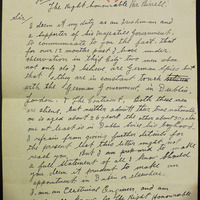 The Right Honourable Mr Birrell.
Sir,
I deem it my duty as an Irishman and
a supporter of his Majesty's Government,
to communicate to you the fact that
for over 12 months past I have under
observation in this City two men who
not only do I believe are German spies but
that they are in constant touch
with the German Government, in Dublin,
London & The Continent. Both these men
are aliens, but neither admit this. One
is aged about 26 years & the other about 30 years
one at least is in Dublin since his boyhood
I refrain from giving further details for
the present that this letter might not
reach you. But I am prepared to make
a full statement of all I know should
you deem it prudent to make an
appointment in Dublin or elsewhere.
I am an Electrical Engineer, and am
the Right Honourable